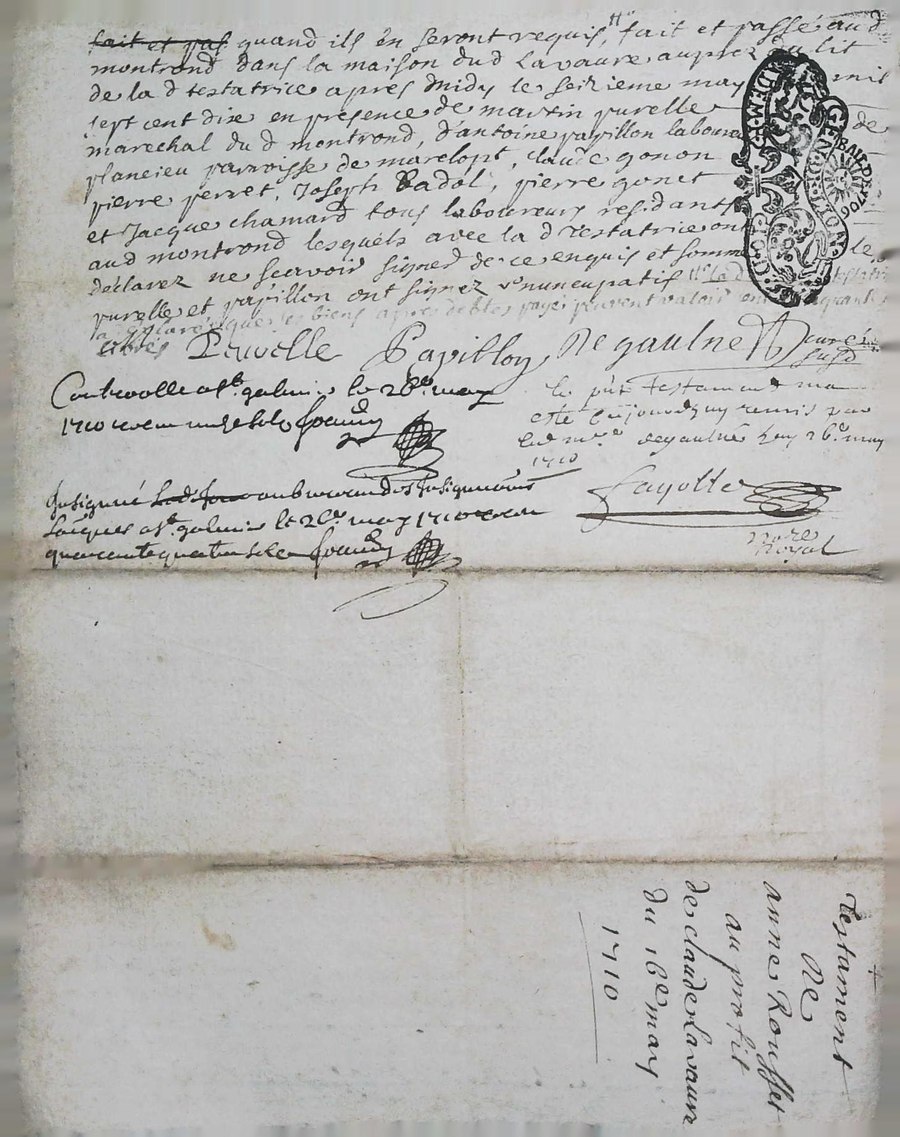 fait et pas quand ils en seront requis, fait et passé aud
montrond dans la maison dud Lavaure auprez du lit
de la d testatrice apres midy le seizieme may mil
sept cent dix en presence de martin purelle
marechal du d montrond, d'antoine papillon laboura de
plancieu parroisse de marclopt, claude gonon
pierre perret, Joseph Badol, pierre gonet
et Jacque chamard tous laboureurs residants
aud montrond lesquels avec la d Testatrice ont
declarez ne scavoir signer de ce enquis et somm
purelle et papillon ont signez
les biens apres debtes payés peuvent valoir
Purelle Papillon De gaulne curé
susd
Controolle a st. galmier le 26e. may
1710
le pnt Testament m a
esté cejourdhuy remis par
led mre degaulne 26e. may
1710
Insinué au bureau des Insinuations
Laiques a st. galmier le 26e. may 1710
quarante quatre sols
Fayolle
Nore
Royal
GEN. D. LYON
BAIL. PR. 1706
Testament
De
anne Rousset
au profit
de claude Lavaure
du 16e may
1710